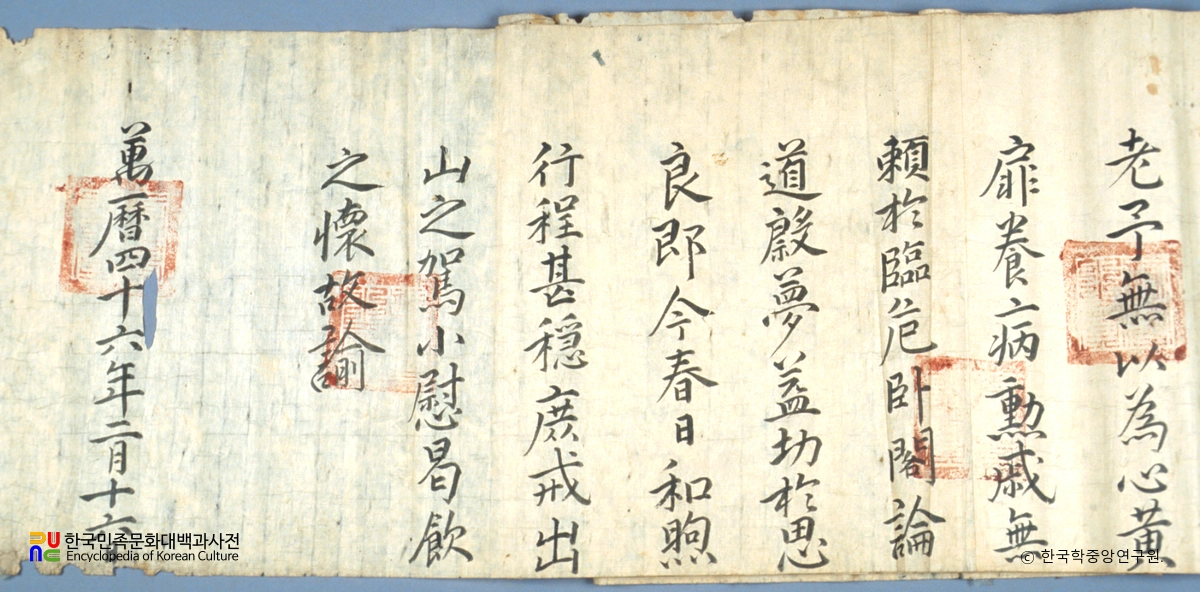 老予無以為心黃
扉養亡病勳戚無
賴於臨危卧閣論
道殷夢益切於思
良即今春日和煦
行程甚穩庶戒出
山之駕小慰曷飲
之懷故諭
萬曆四十六年二月十六
한국민족문화대백과사전
Encyclopedia of Korean Culture
© 한국학중앙연구원.